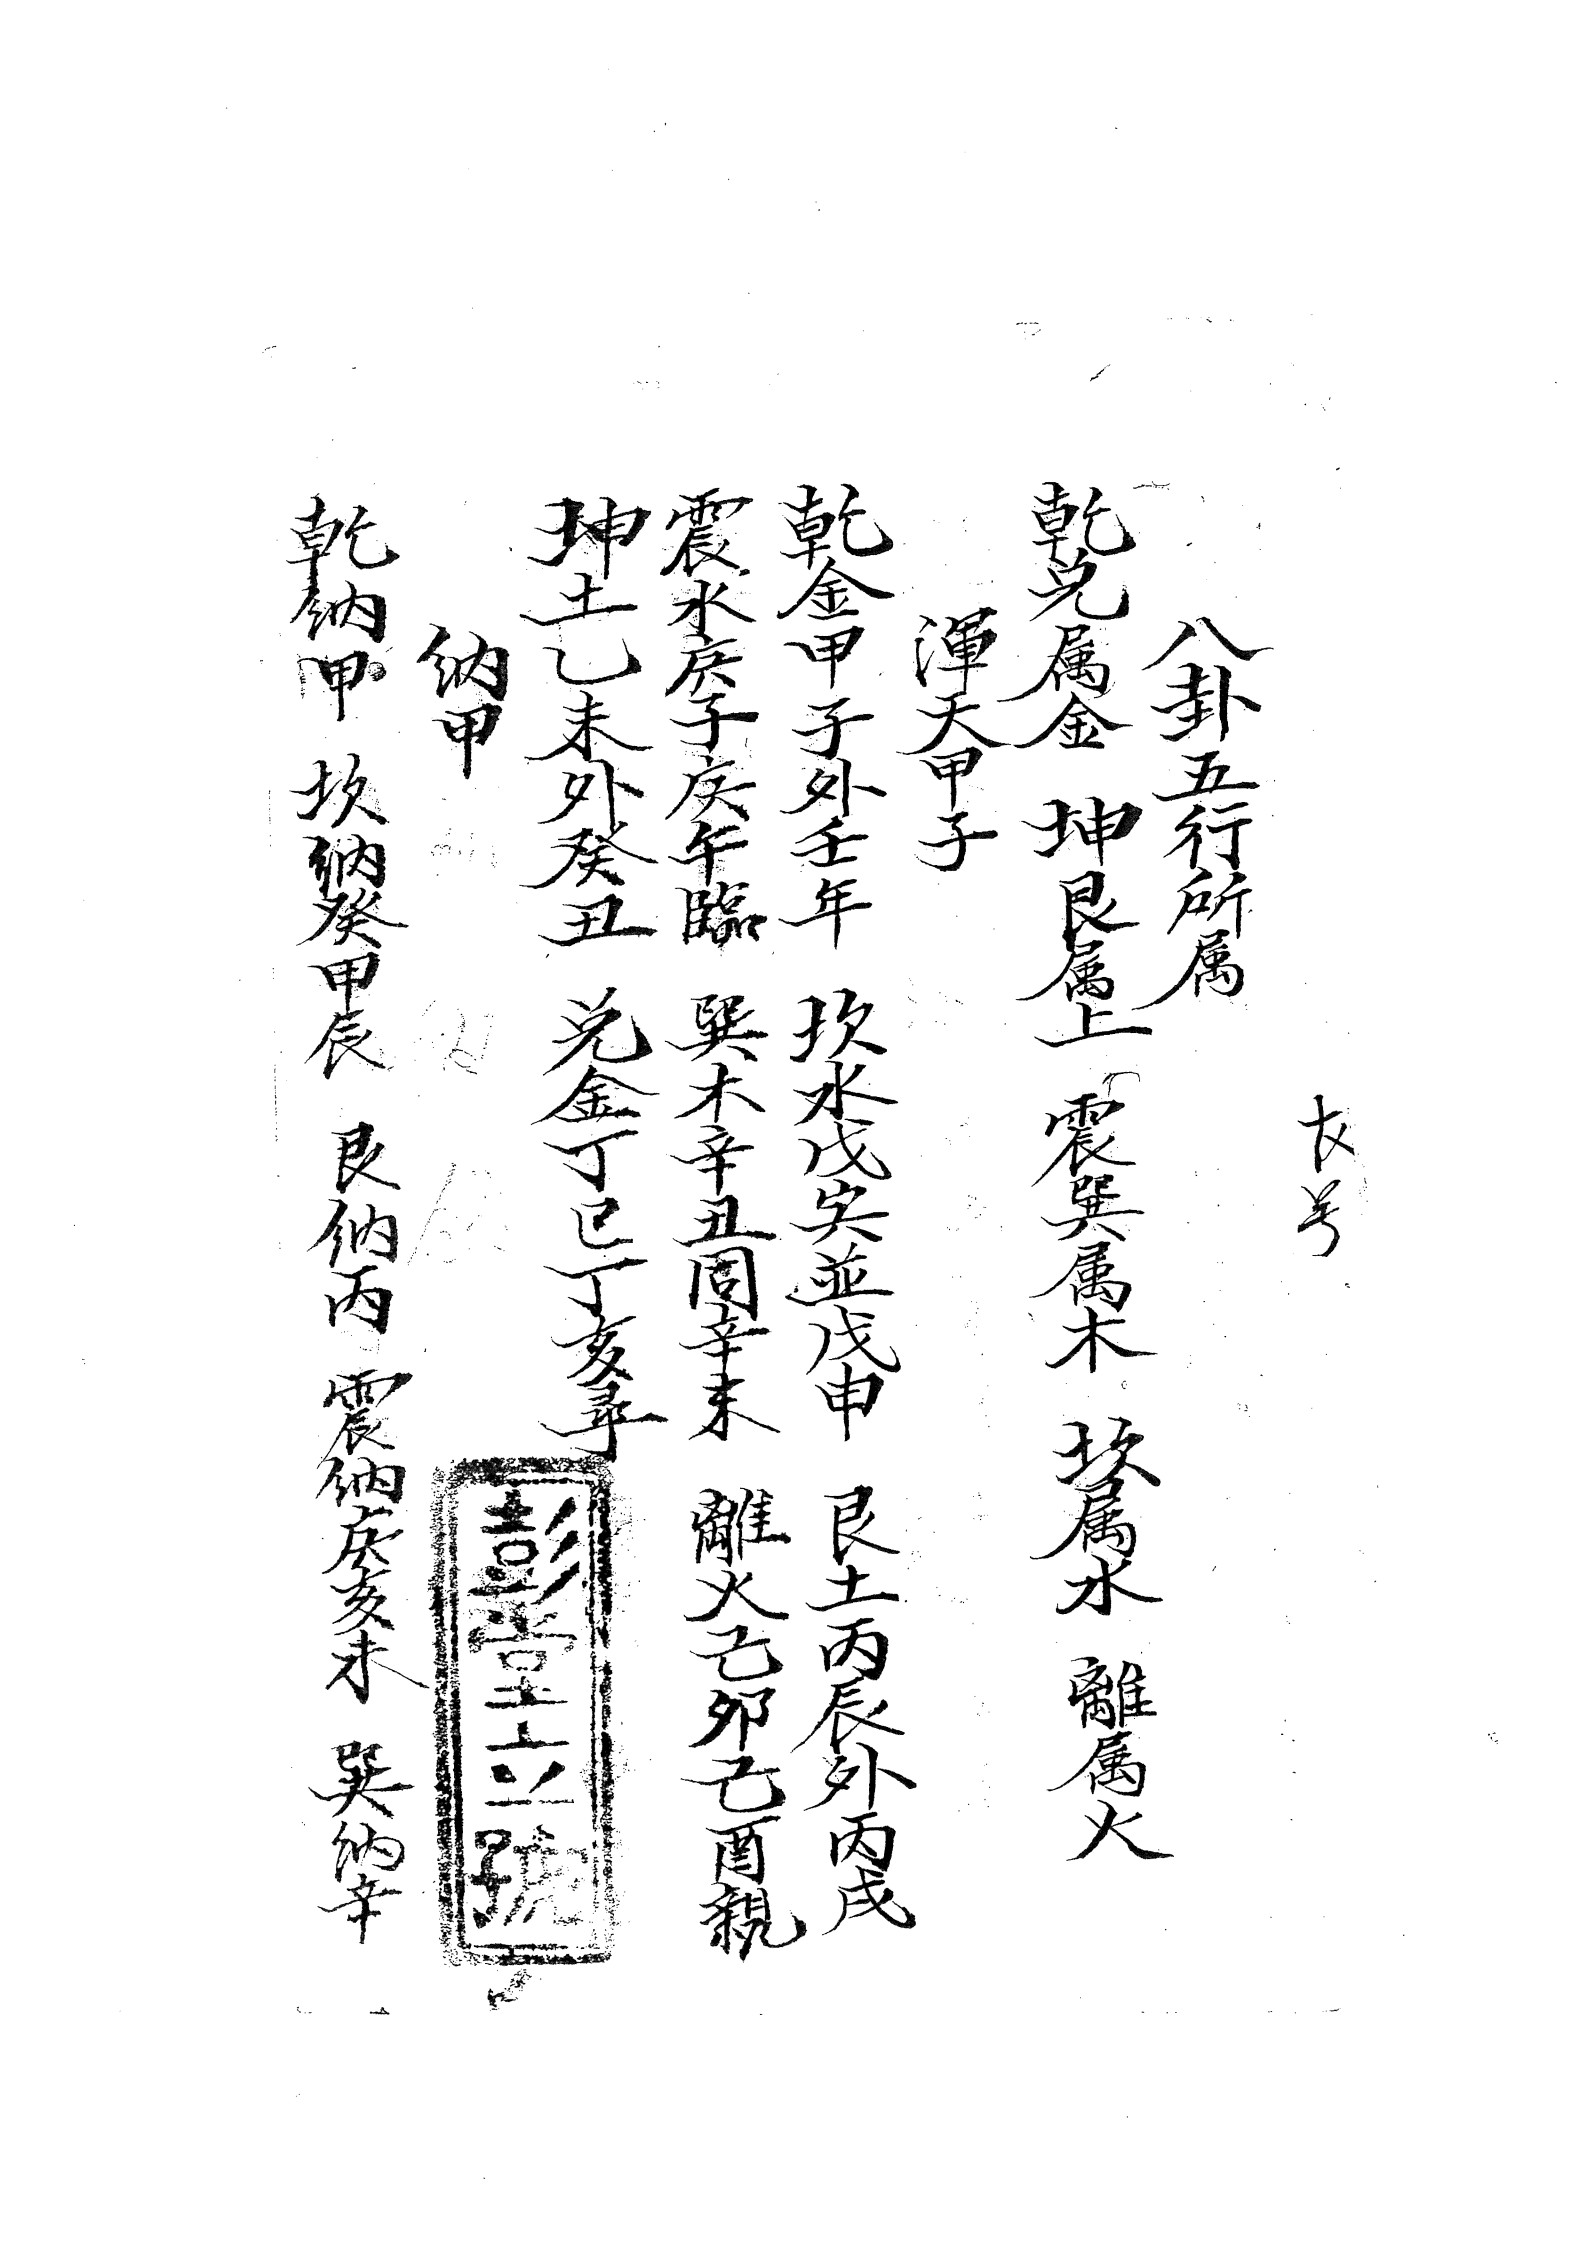 八卦五行所属
乾兑属金 坤艮属上 震巽属木 坎属水 離属火
渾天甲子
乾金甲子外壬年 坎水戊寅並戊申 艮土丙辰外丙戌
震水庚子庚午臨 巽木辛丑同辛未 離火己卯己酉親
坤土乙未外癸丑 兑金丁巳丁亥尋
納甲
乾納甲 坎納癸甲辰 艮納丙 震納庚亥未 巽納辛
彭堂立號